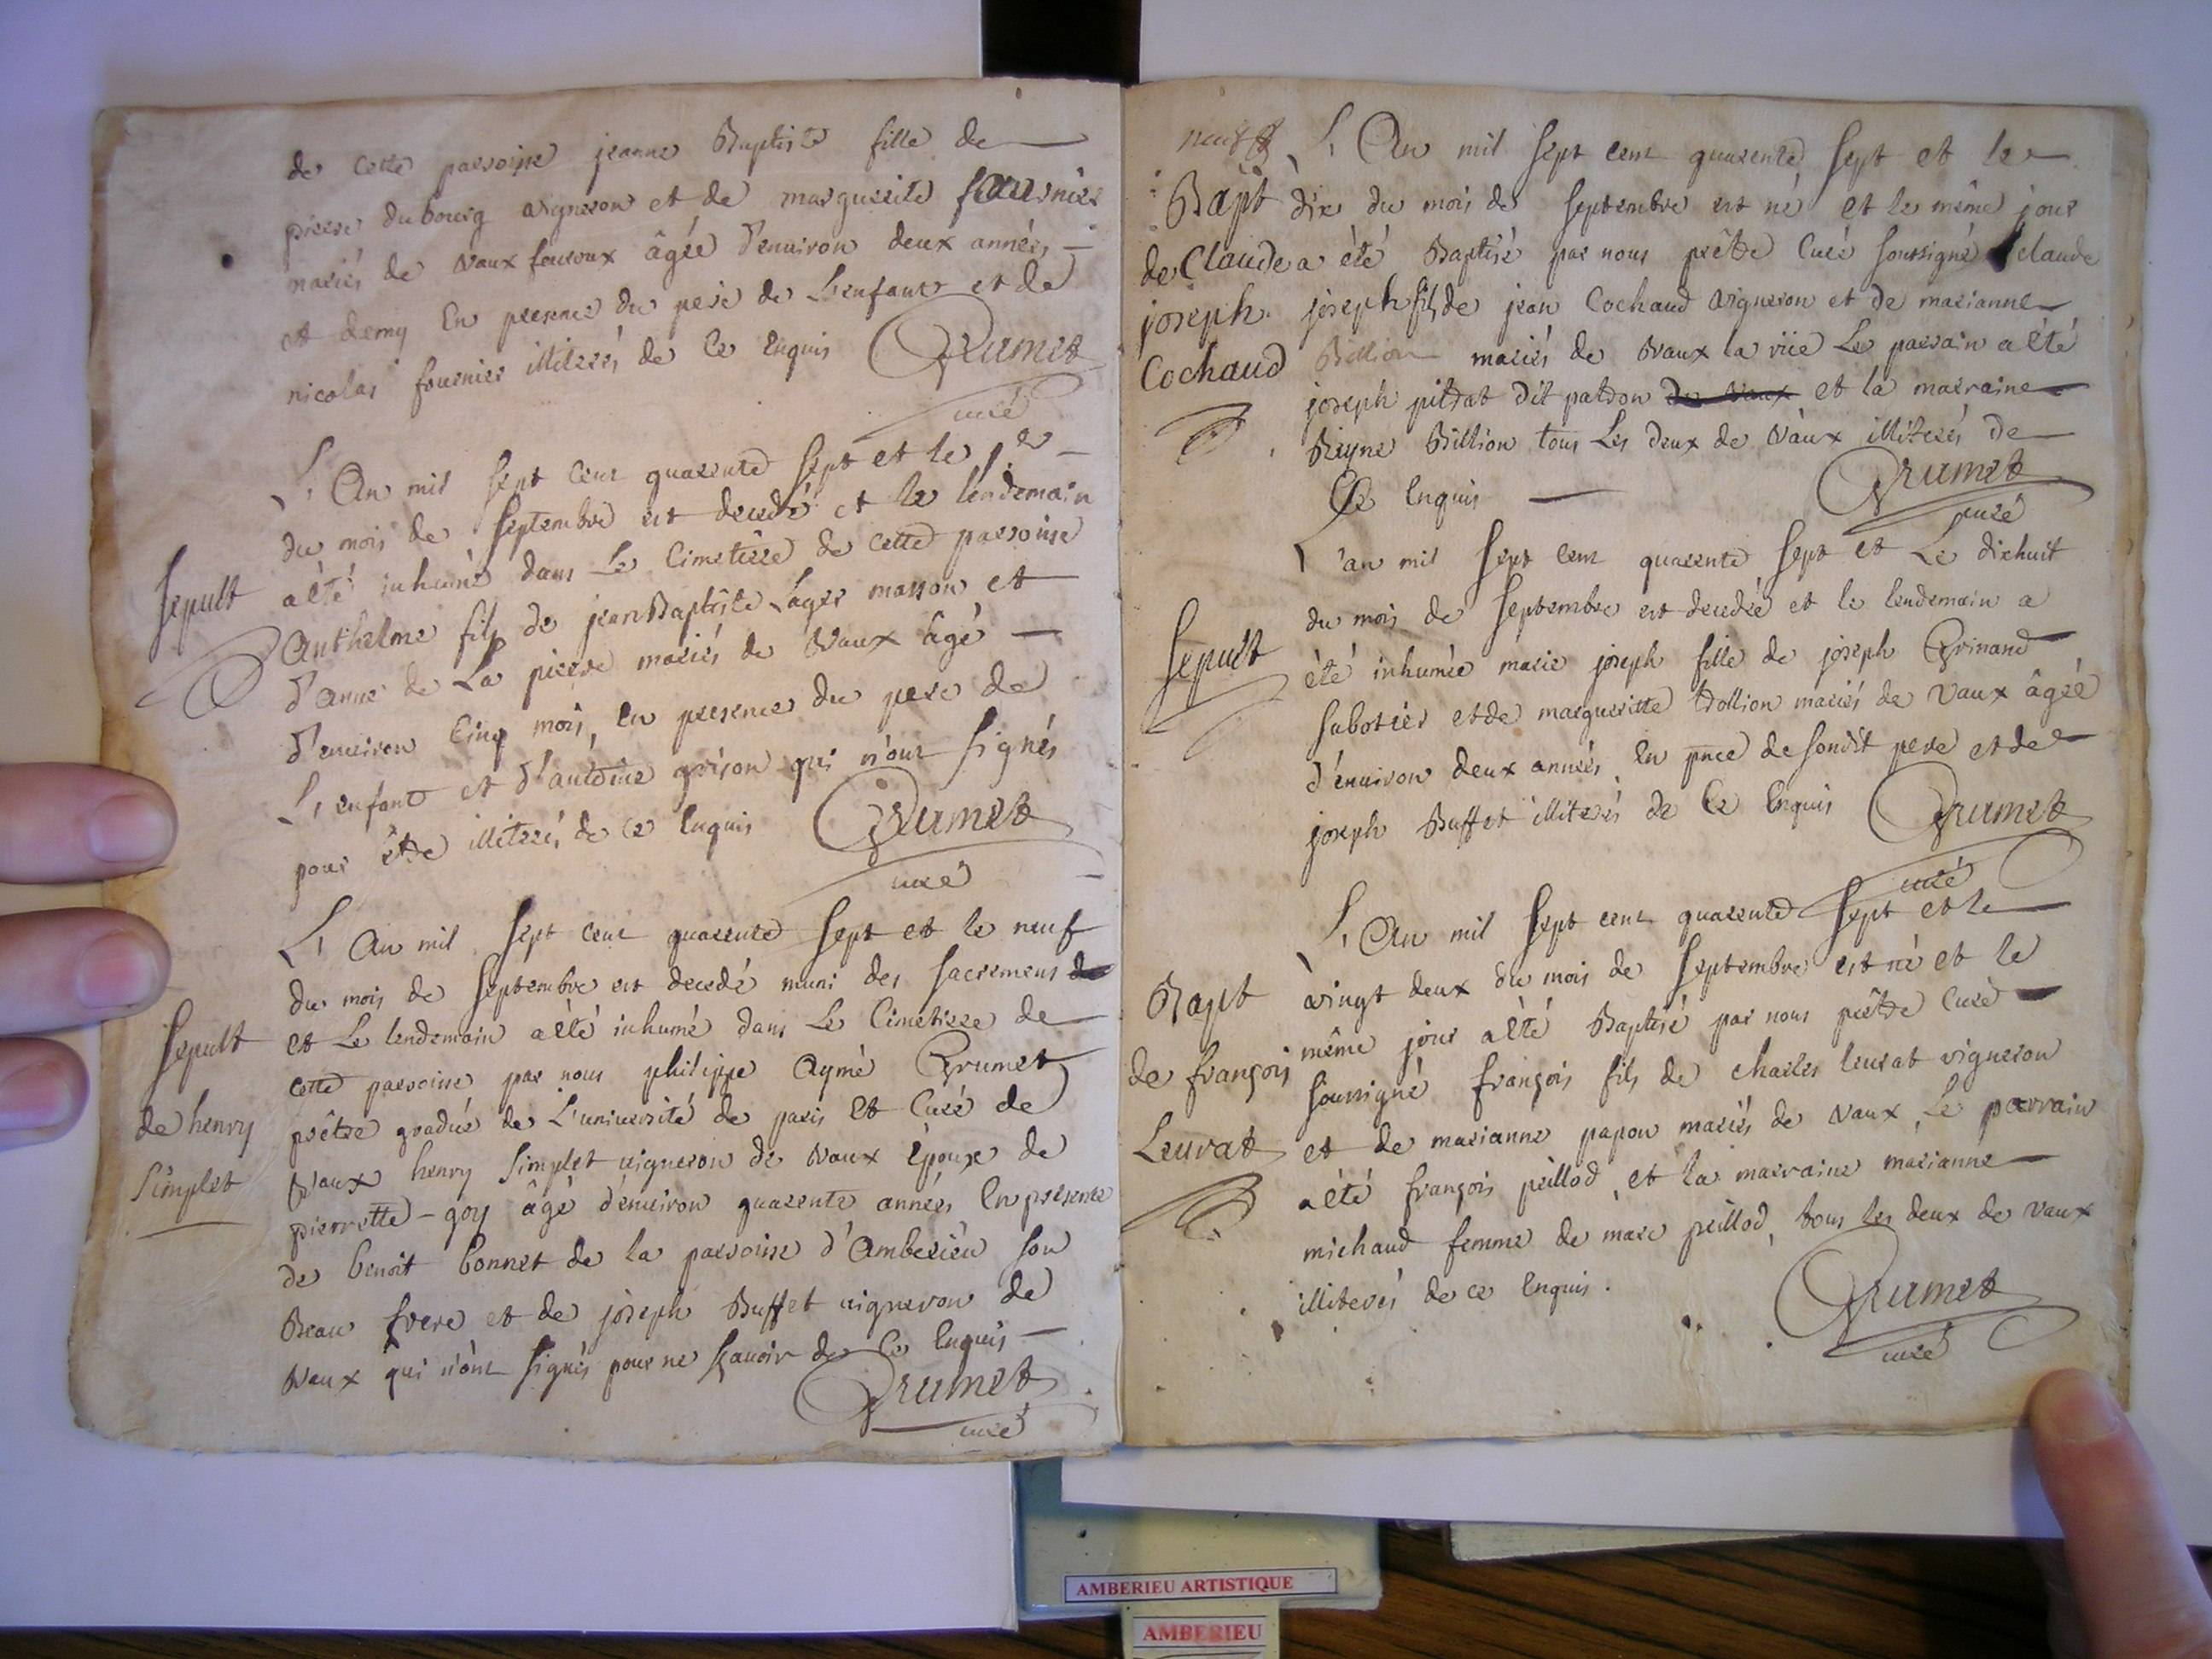 de cette parroisse jeanne Baptiste fille de
pierre dubourg vigneron et de marguerite fournier
mariés de vaux fouroux âgée d'environ deux années
et demy En presence du pere de L'enfant et de
nicolas fournier illiterés de Ce Enquis Grumet
curé
L'An mil sept cent quarente sept et le 1.er
du mois de septembre est decedé et le lendemain
a été inhumé dans Le Cimetiere de cette parroisse
Sepult
Anthelme fils de jean Baptiste Lager masson et
d'anne de La pierre mariés de Vaux âgé
d'environ Cinq mois, En presence du pere de
L'enfant et d'antoine grison qui n'ont signés
pour être illiterés de ce Enquis Grumet
curé
L'An mil sept cent quarente sept et le neuf
du mois de septembre est decedé muni des sacremens
et Le lendemain a été inhumé dans Le Cimetiere de
Sepult
cette parroisse par nous philippe Aymé Grumet
prêtre gradué de L'université de paris Et Curé de
de henry
Vaux henry Simplet vigneron de Vaux Epoux de
Simplet
pierrette goy âgé d'environ quarente années En presence
de benoit bonnet de la parroisse d'Amberieu son
Beau frere et de joseph Buffet vigneron de
Vaux qui n'ont signés pour ne sçavoir de Ce Enquis
Grumet
curé
neuf
L'An mil sept cent quarente sept et le
Bapt
dix du mois de septembre est né et le même jour
de Claude
a été Baptisé par nous prêtre Curé soussigné claude
joseph
joseph fils de jean Cochaud vigneron et de marianne
Cochaud
Billion mariés de Vaux la rüe Le parrain a été
joseph pitrat dit patron de vaux et la marraine
Reyne Billion tous Les deux de Vaux illiterés de
Ce Enquis Grumet
curé
L'an mil sept cent quarente sept et Le dixhuit
du mois de septembre est decedée et le lendemain a
Sepult
été inhumée marie joseph fille de joseph Grinand
sabotier et de margueritte trollion mariés de Vaux âgée
d'environ deux années En pnce de sondit pere et de
joseph Buffet illiterés de Ce Enquis Grumet
curé
L'An mil sept cent quarente sept et le
Bapt
vingt deux du mois de septembre est né et le
même jour a été Baptisé par nous prêtre Curé
de françois
soussigné françois fils de charles leurat vigneron
Leuvat
et de marianne papon mariés de Vaux, Le parrain
a été françois peillod, et la marraine marianne
michaud femme de marc peillod, tous les deux de Vaux
illiterés de ce Enquis. Grumet
curé
AMBERIEU ARTISTIQUE
AMBERIEU